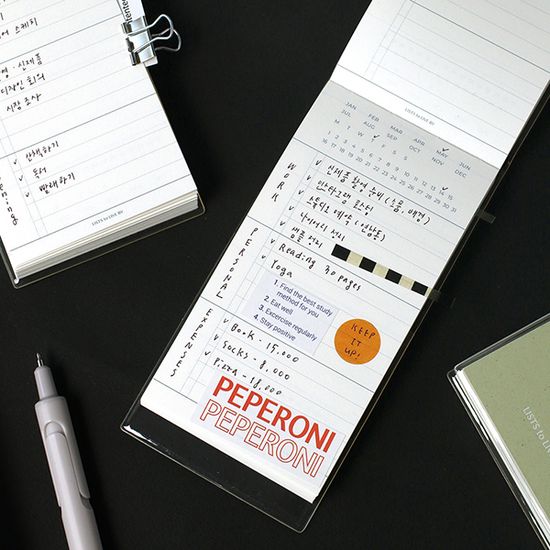 어 스케치
신제품
디자인 회의
시장 조사
산책하기
독서
빨래하기
LISTS to LIVE BY
LISTS to LIVE BY
JAN FEB MAR APR MAY JUN
JUL AUG SEP OCT NOV DEC
M T W T F S S
1 2 3 4 5 6 7 8 9 10 11 12 13 14 15
16 17 18 19 20 21 22 23 24 25 26 27 28 29 30 31
WORK
v 신제품 촬영 준비 (소품, 배경)
v 인스타그램 포스팅
v 스튜디오 예약 (강남동)
v 다이어리 정리
v 샘플 정리
PERSONAL
v Reading 30 pages
v Yoga
1. Find the best study
method for you
2. Eat well
3. Excercise regularly
4. Stay positive
KEEP
IT
UP!
EXPENSES
v Book - 15,000
v Socks - 8,000
v Pizza - 18,000
PEPERONI
PEPERONI
LISTS to LIV